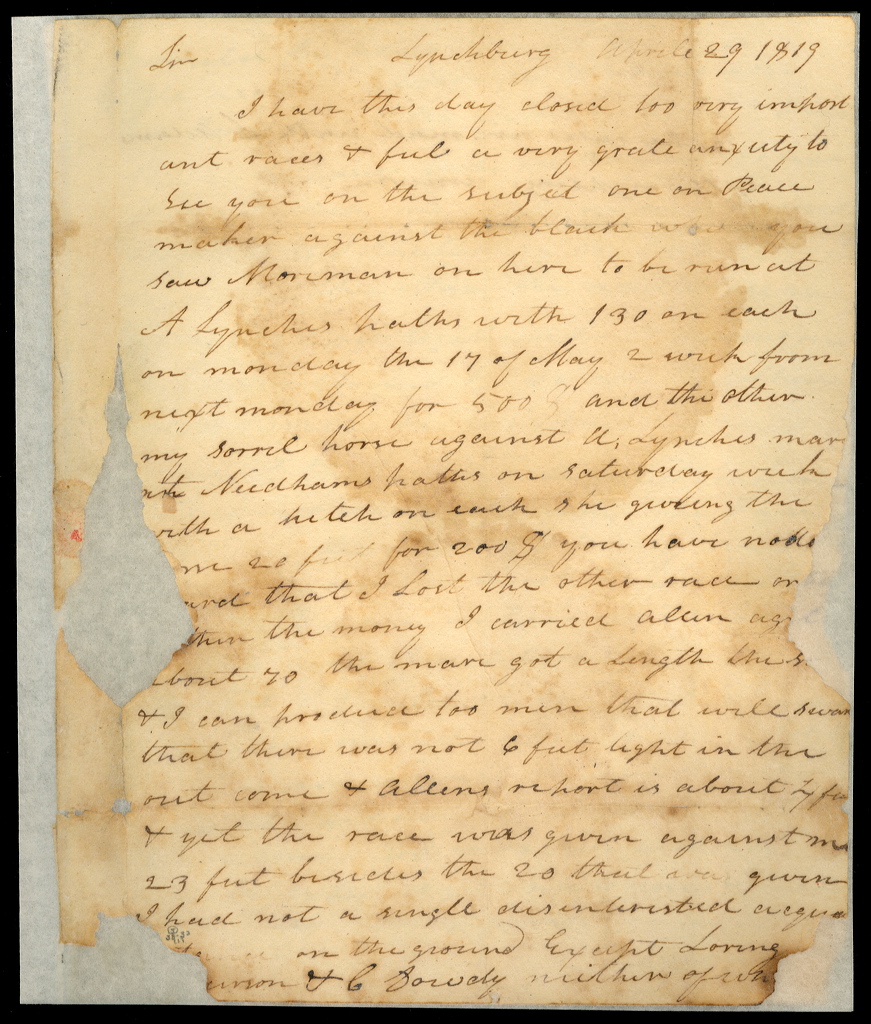 Sir Lynchburg Aprile 29 1819
I have this day closed too very import
ant races & feel a very grate anxiety to
see you on the subject one on Peace
maker against the black you
saw Moreman on here to be run at
A Lynches paths with 130 on each
on monday the 17 of May 2 week from
next monday for 500 $ and the other
my sorrel horse against A, Lynches mare
at Needhams paths on saturday week
with a hetch on each she giveing the
20 feet for 200 $ you have no
that I Lost the other race or
the money I carried Allen
about 70 the mare got a Length the
& I can produce too men that will swar
that there was not 6 feet light in the
out come & Allens report is about
& yet the race was given against m
23 feet besides the 20 that was given
I had not a single disinterested acqua
on the ground Except Loring
& C Dowdy neither of